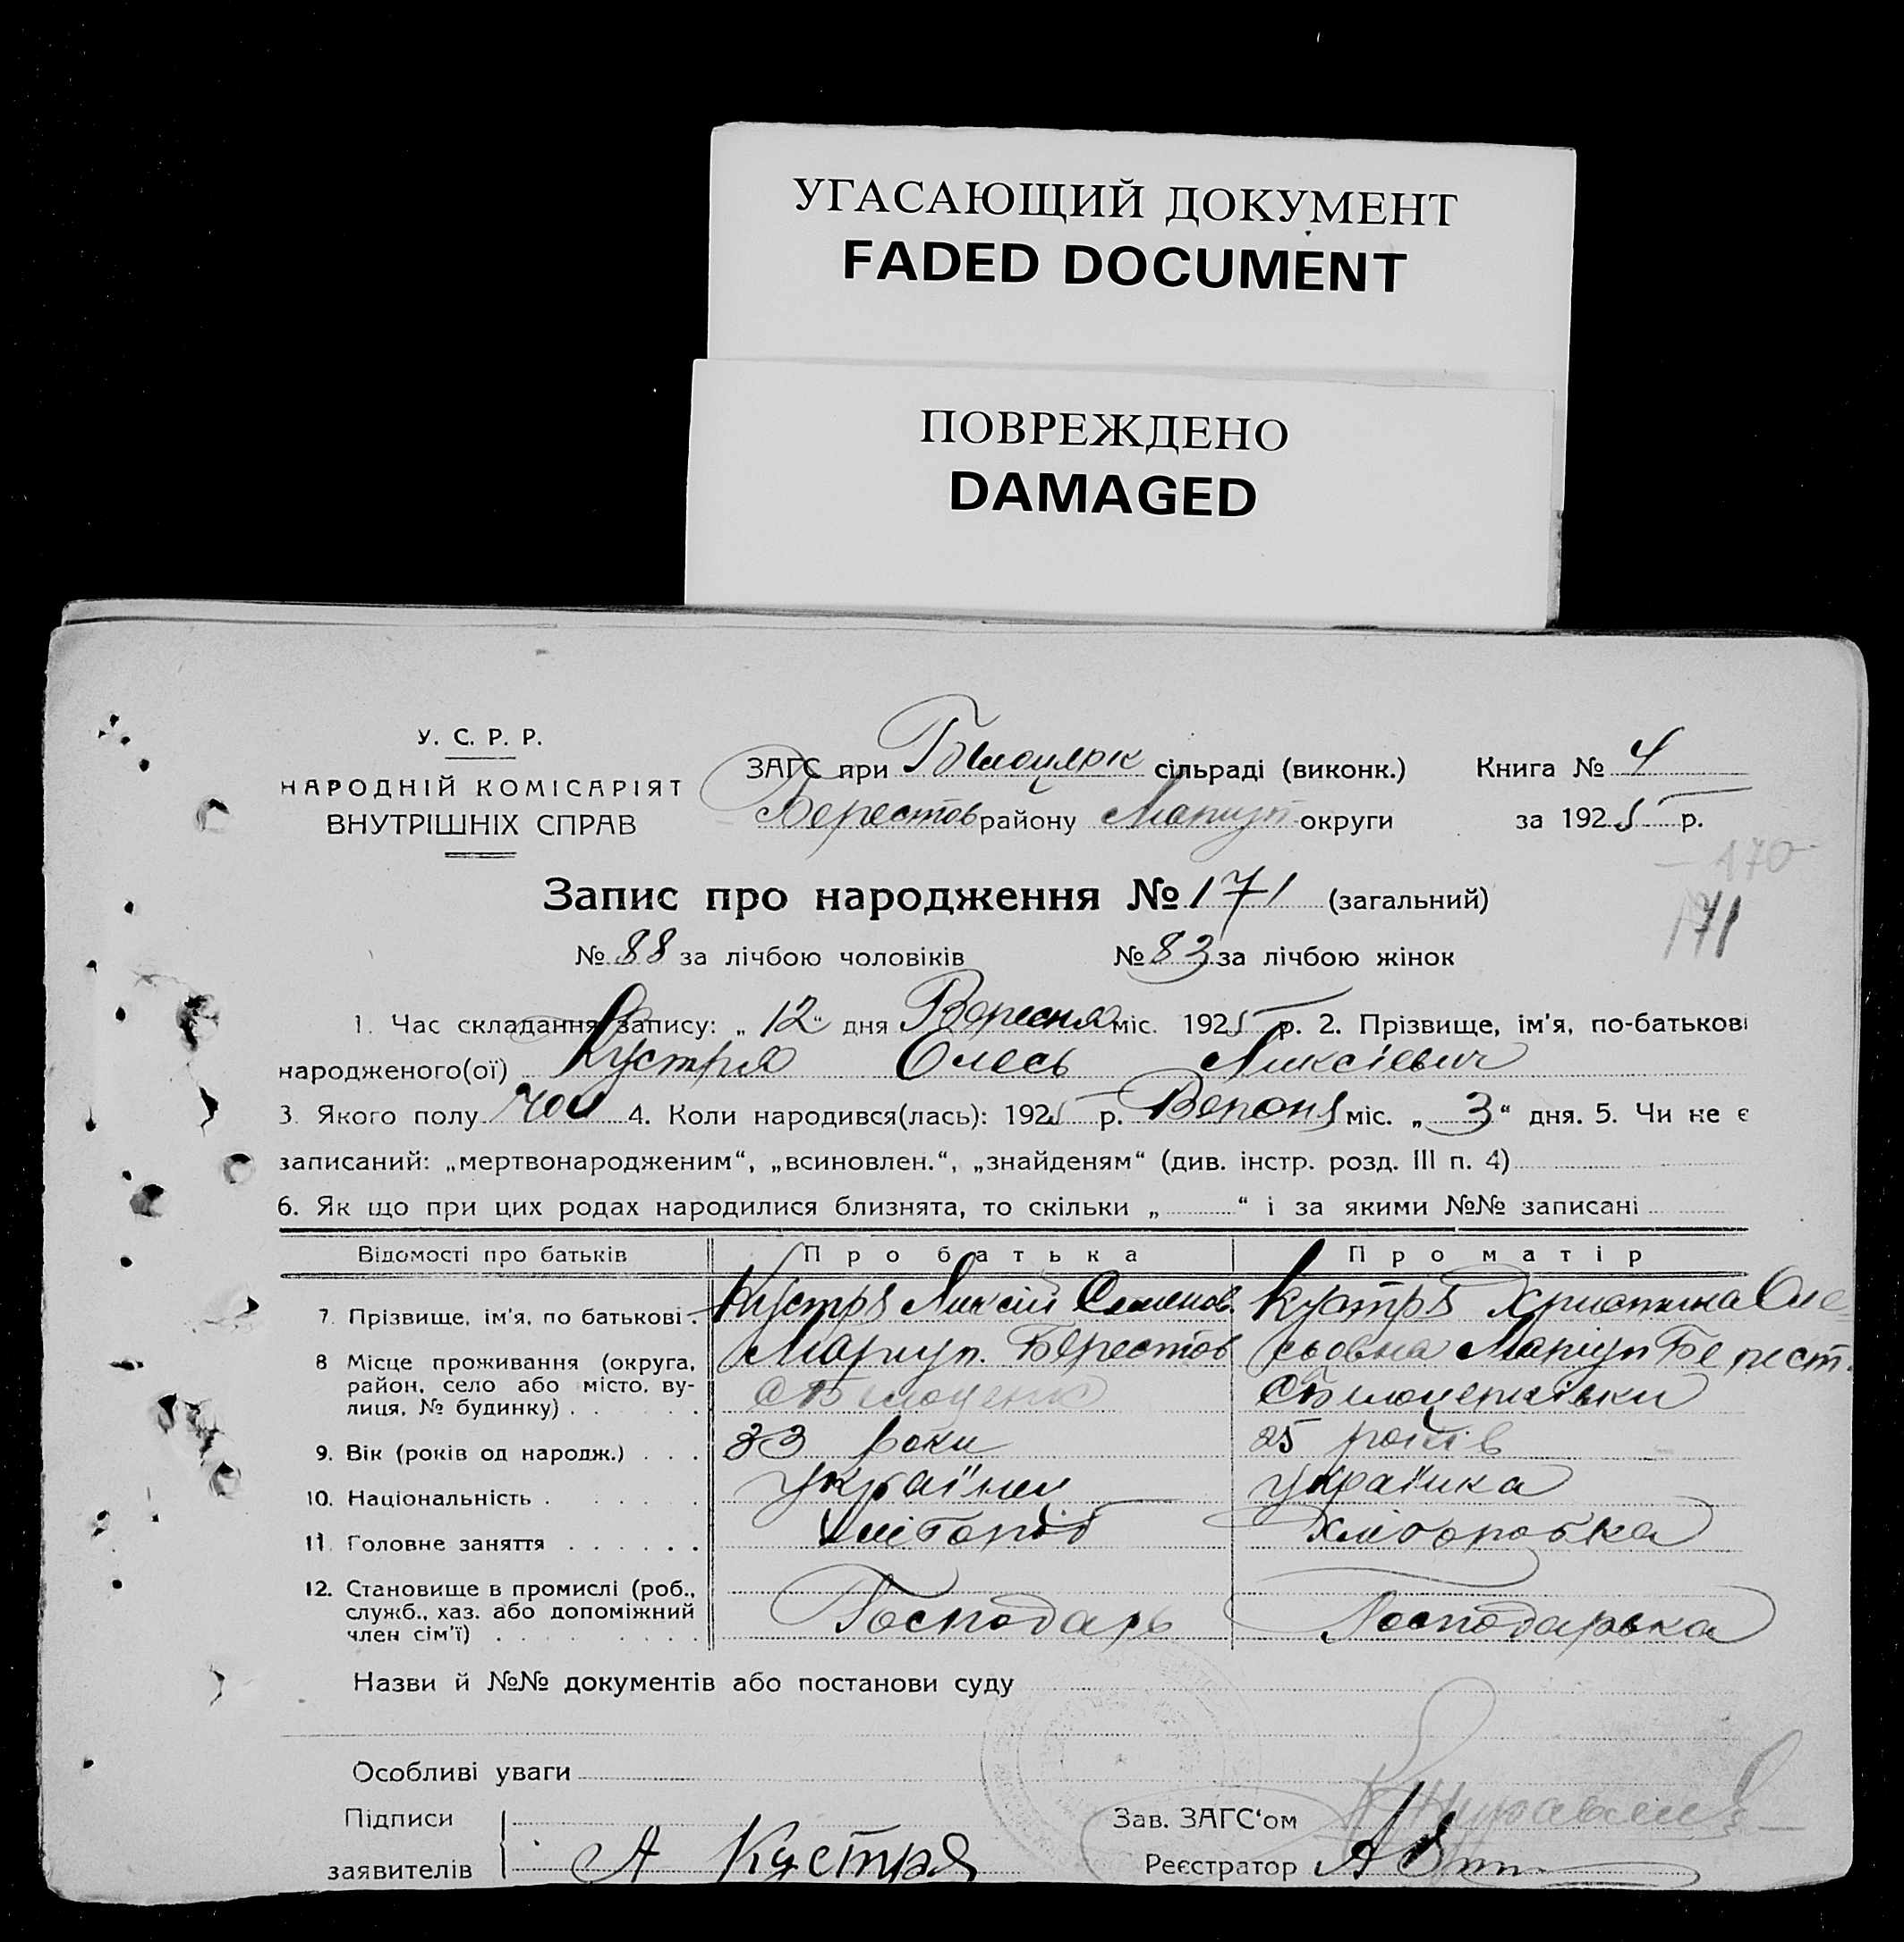 УГАСАЮЩИЙ ДОКУМЕНТ
FADED DOCUMENT
ПОВРЕЖДЕНО
DAMAGED
У. С. Р. Р.
НАРОДНІЙ КОМІСАРІЯТ
ВНУТРІШНІХ СПРАВ
ЗАГС при Білоцерк сільраді (виконк.) Книга № 4
Берестов району Маріуп округи за 1925 р.
170
Запис про народження № 171 (загальний)
171
№ 88 за лічбою чоловіків № 83 за лічбою жінок
1. Час складання запису: „ 12 “ дня Вересня міс. 1925 р. 2. Прізвище, ім'я, по-батькові
народженого(ої) Кустря Олесь Ликсієвич
3. Якого полу чол 4. Коли народився(лась): 1925 р. міс. „ 3 “ дня. 5. Чи не є
записаний: „мертвонародженим“, „всиновлен.“, „знайденям“ (див. інстр. розд. III п. 4)
6. Як що при цих родах народилися близнята, то скільки „ “ і за якими №№ записані
Відомості про батьків Про батька Про матір
7. Прізвище, ім'я, по батькові . Кустря Ликсій Семенов. Кустря Христина Оле
8 Місце проживання (округа, Маріуп. Берестов сьовна Маріуп Берест.
район, село або місто, ву-
лиця, № будинку) . . . . с Білоцерк с Білоцерківки
9. Вік (років од народж.) . . . 33 роки 25 років
10. Національність . . . . . українец українка
11. Головне заняття . . . . . . хлібороб хліборобка
12. Становище в промислі (роб.,
служб., хаз. або допоміжний
член сім'ї) . . . . . . . . Господарь Господарька
Назви й №№ документів або постанови суду
Особливі уваги
Підписи Зав. ЗАГС‘ом
заявителів А Кустря Реєстратор